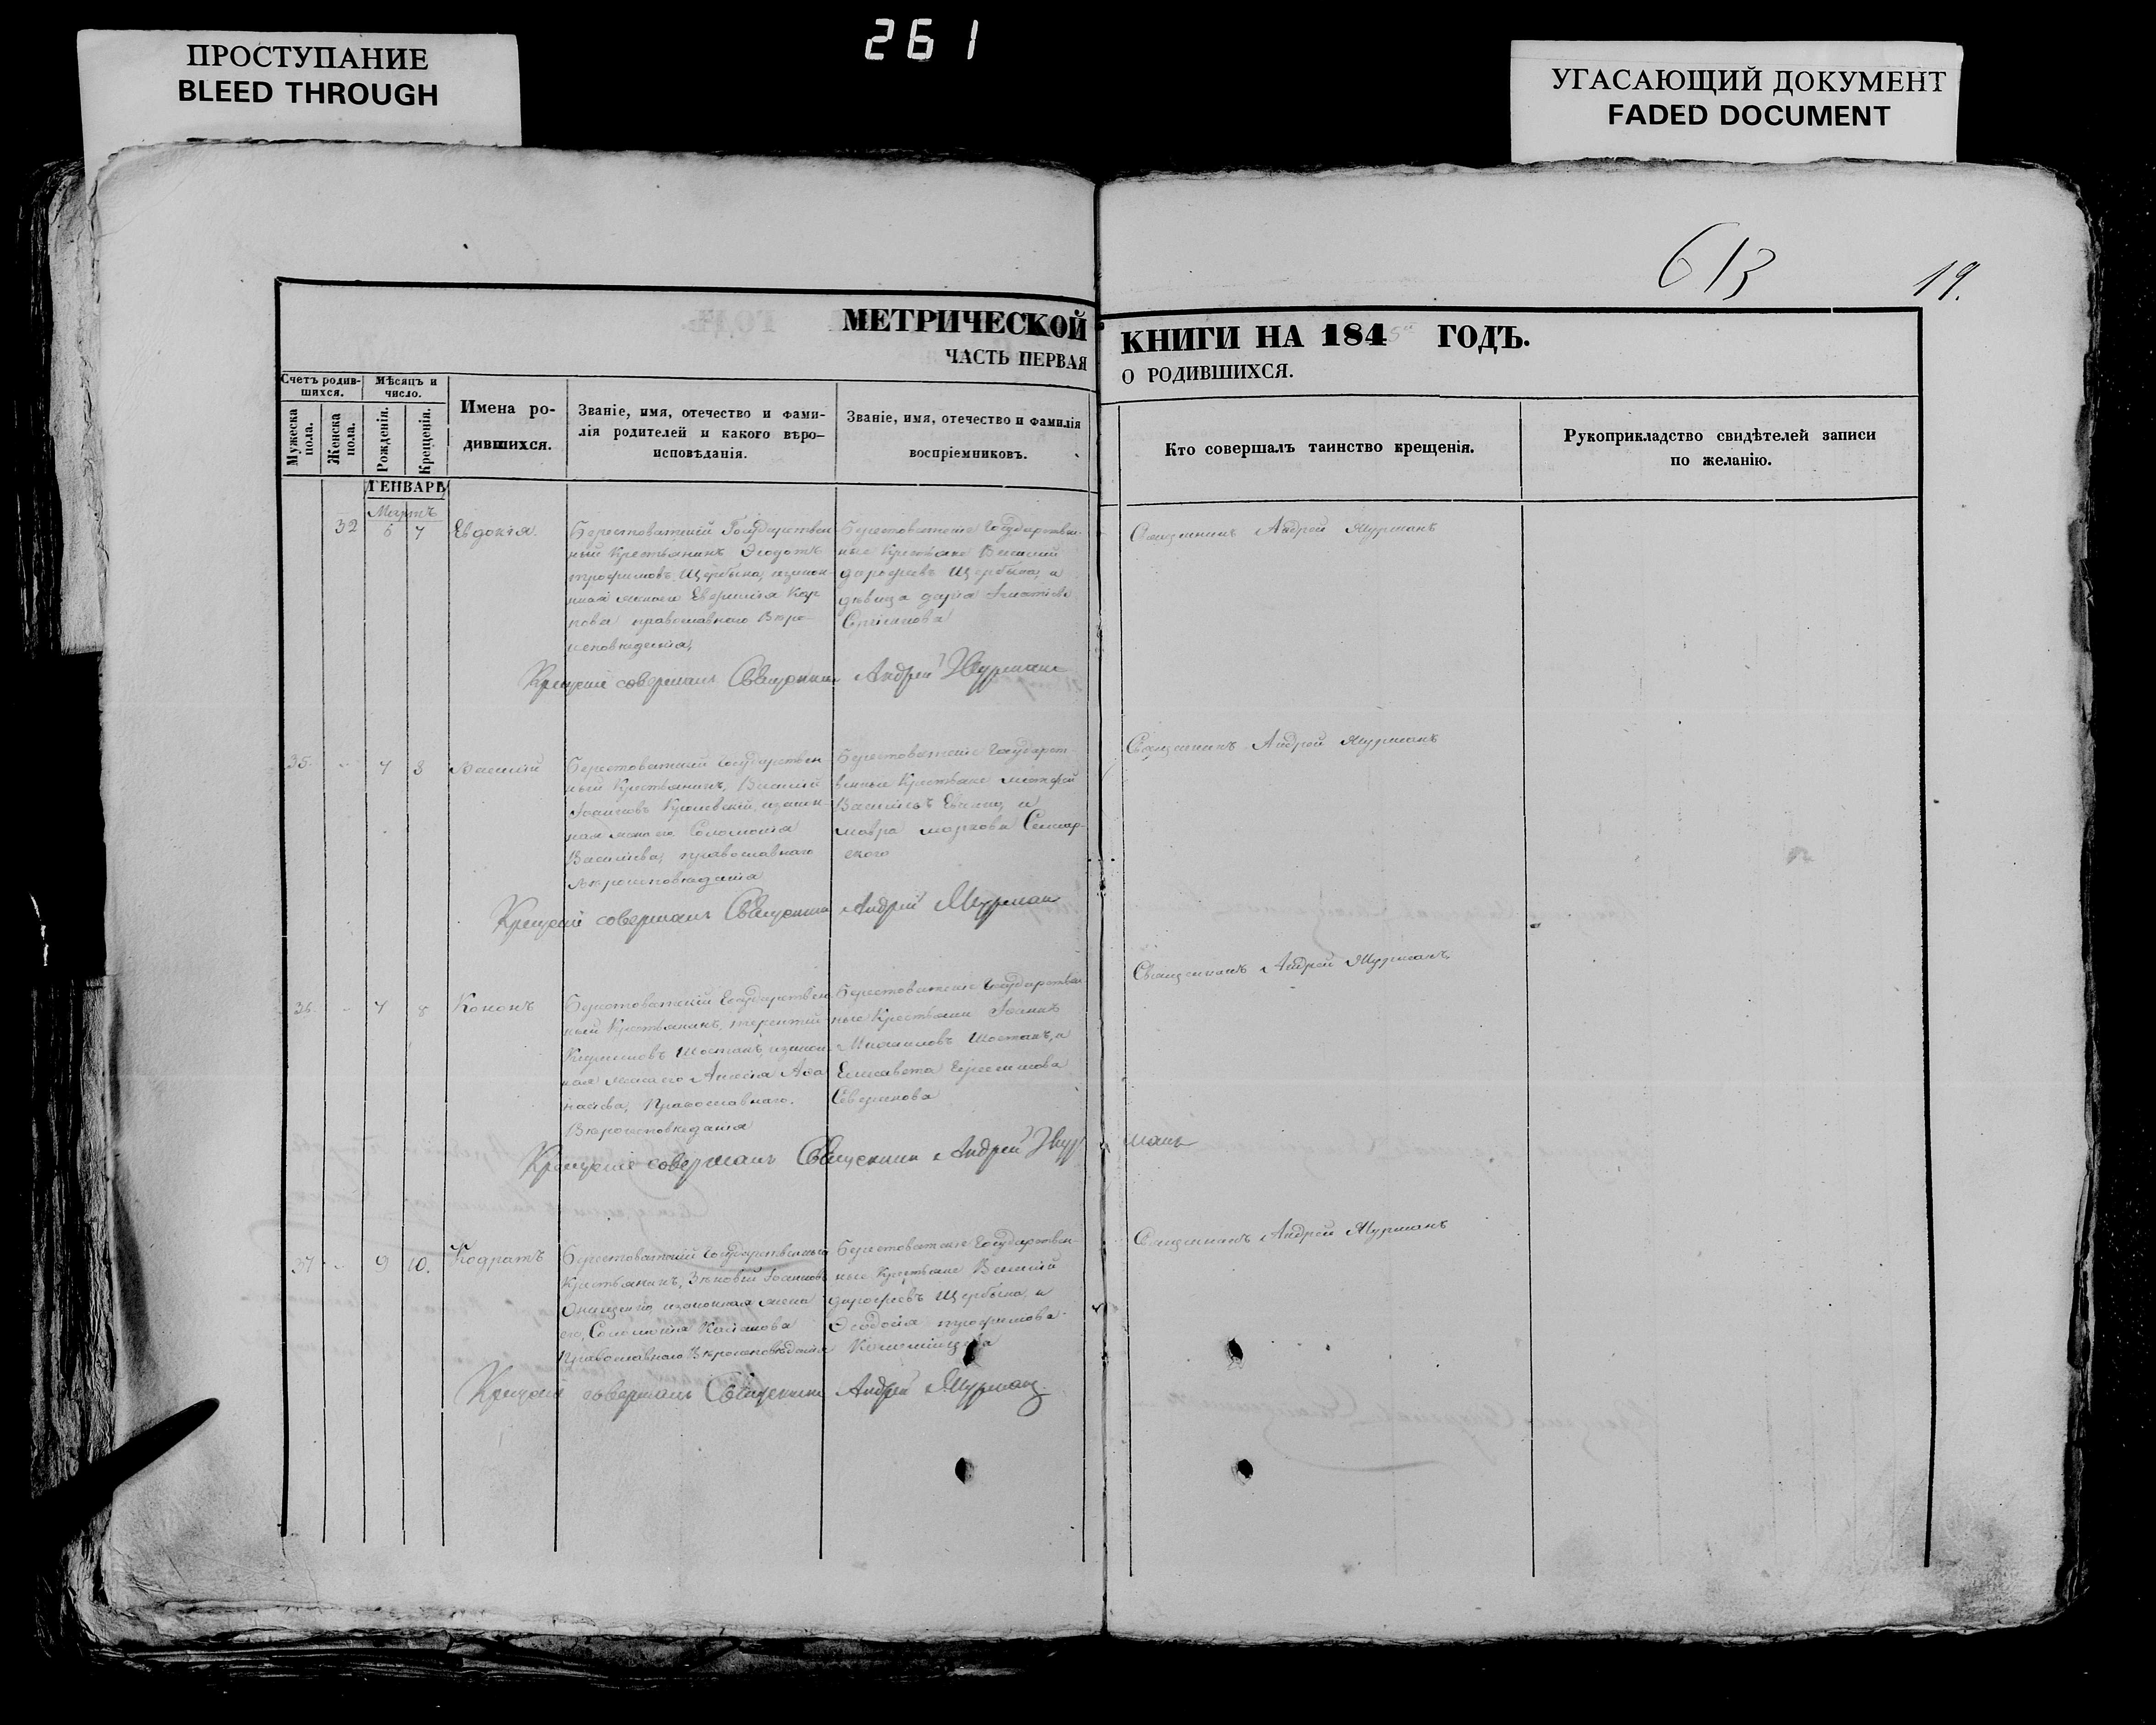 261
ПРОСТУПАНИЕ
BLEED THROUGH
УГАСАЮЩИЙ ДОКУМЕНТ
FADED DOCUMENT
613
19.
МЕТРИЧЕСКОЙ КНИГИ НА 1845 ГОДЪ.
ЧАСТЬ ПЕРВАЯ О РОДИВШИХСЯ.
Счетъ родив-
шихся.
Мужеска
пола.
Женска
пола.
Мѣсяцъ и
число.
Рожденія.
Крещенія.
Имена ро-
дившихся.
Званіе, имя, отечество и фами-
лія родителей и какого вѣро-
исповѣданія.
Званіе, имя, отечество и фамилія
воспріемниковъ.
Кто совершалъ таинство крещенія.
Рукоприкладство свидѣтелей записи
по желанію.
ГЕНВАРЬ
Мартъ
32 6 7 Евдокія.
Берестоватскій Государствен
ный Крестьянинъ Ѳеодотъ
трофимовъ Щербина, изакон
ная жена Евфимія Кар
пова православнаго Вѣро-
исповѣденія,
Берестоватскіе Государствен-
ные Крестьяне Василій
дорофѣевъ Щербина, и
дѣвица дарія
Священникъ Андрей Мурманъ
Крещеніе совершалъ Священникъ Андрей Мурманъ
35. 7 8 Василій
Берестоватскій Государствен
ный Крестьянинъ, Василій
Іоанновъ изакон
ная жена его Соломонія
Василіева, православнаго
вѣроисповѣданія
Берестоватскіе Государст-
венные Крестьяне
Василіевъ и
мавра маркова
Священникъ Андрей Мурманъ
Крещеніе совершалъ Священникъ Андрей Мурманъ
36. 7 8 Кононъ
Берестоватскій Государствен
ный Крестьянинъ, терентій
Шостакъ, изакон
ная жена его Анисія Аѳа
насіева, Православнаго.
Вѣроисповѣданія
Берестоватскіе Государствен
ные Крестьяне Іоаннъ
Михаиловъ Шостакъ, и
Елисавета
Северинова
Священникъ Андрей Мурманъ
Крещеніе совершалъ Священникъ Андрей Мурманъ
37 9 10. Кодратъ
Берестоватскій Государственный
Крестьянинъ, Зѣновій Іоанновъ
Онищенко, изаконная жена
его, Соломонія
Православнаго Вѣроисповѣданія
Берестоватскіе Государствен-
ные Крестьяне Василій
дорофѣевъ Щербина, и
Ѳеодосія трофимова
Священникъ Андрей Мурманъ
Крещеніе совершалъ Священникъ Андрей Мурманъ